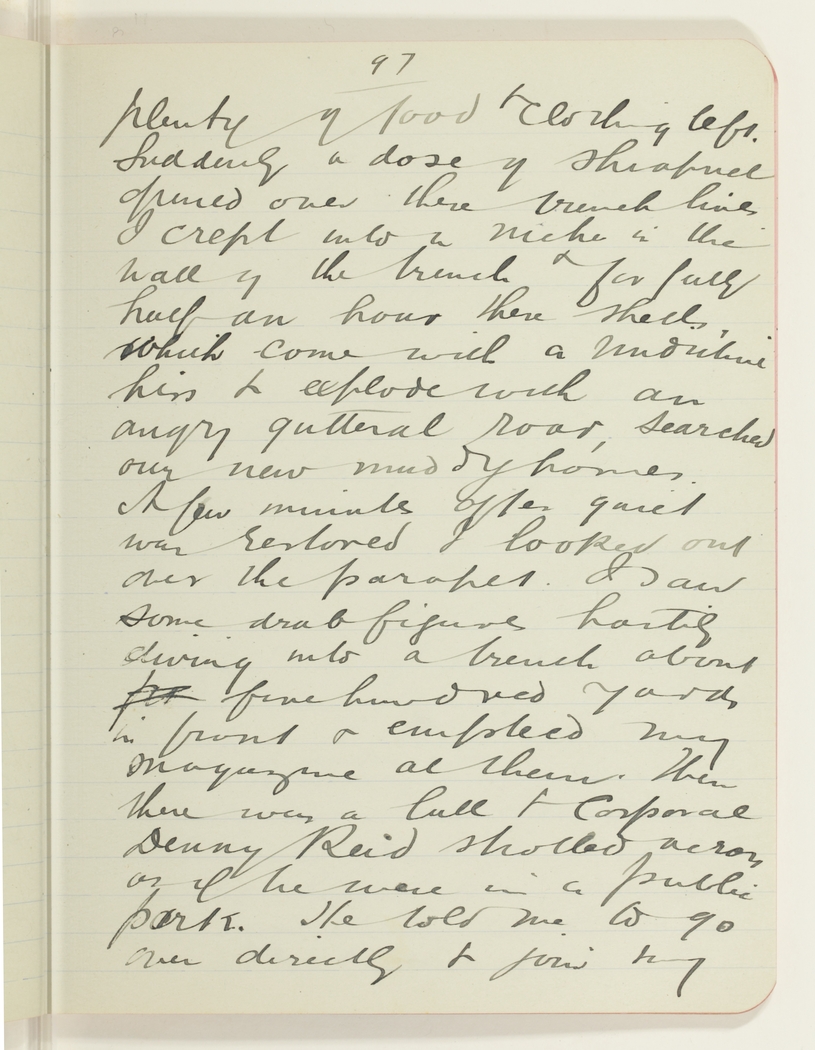 97
plenty of food & clothing left.
Suddenly a dose of shrapnel
opened over these trench lines
I crept into a niche in the
wall of the trench & for fully
half an hour these shells,
which come with a vindictive
hiss & explode with an
angry gutteral roar, searched
our new muddy homes.
A few minutes after quiet
was restored I looked out
over the parapet. I saw
some drab figures hastily
diving into a trench about
five hundred yards
in front & emptied my
magazine at them. Then
there was a lull & Corporal
Denny Reid strolled across
as if he were in a public
park. He told me to go
over directly & join my